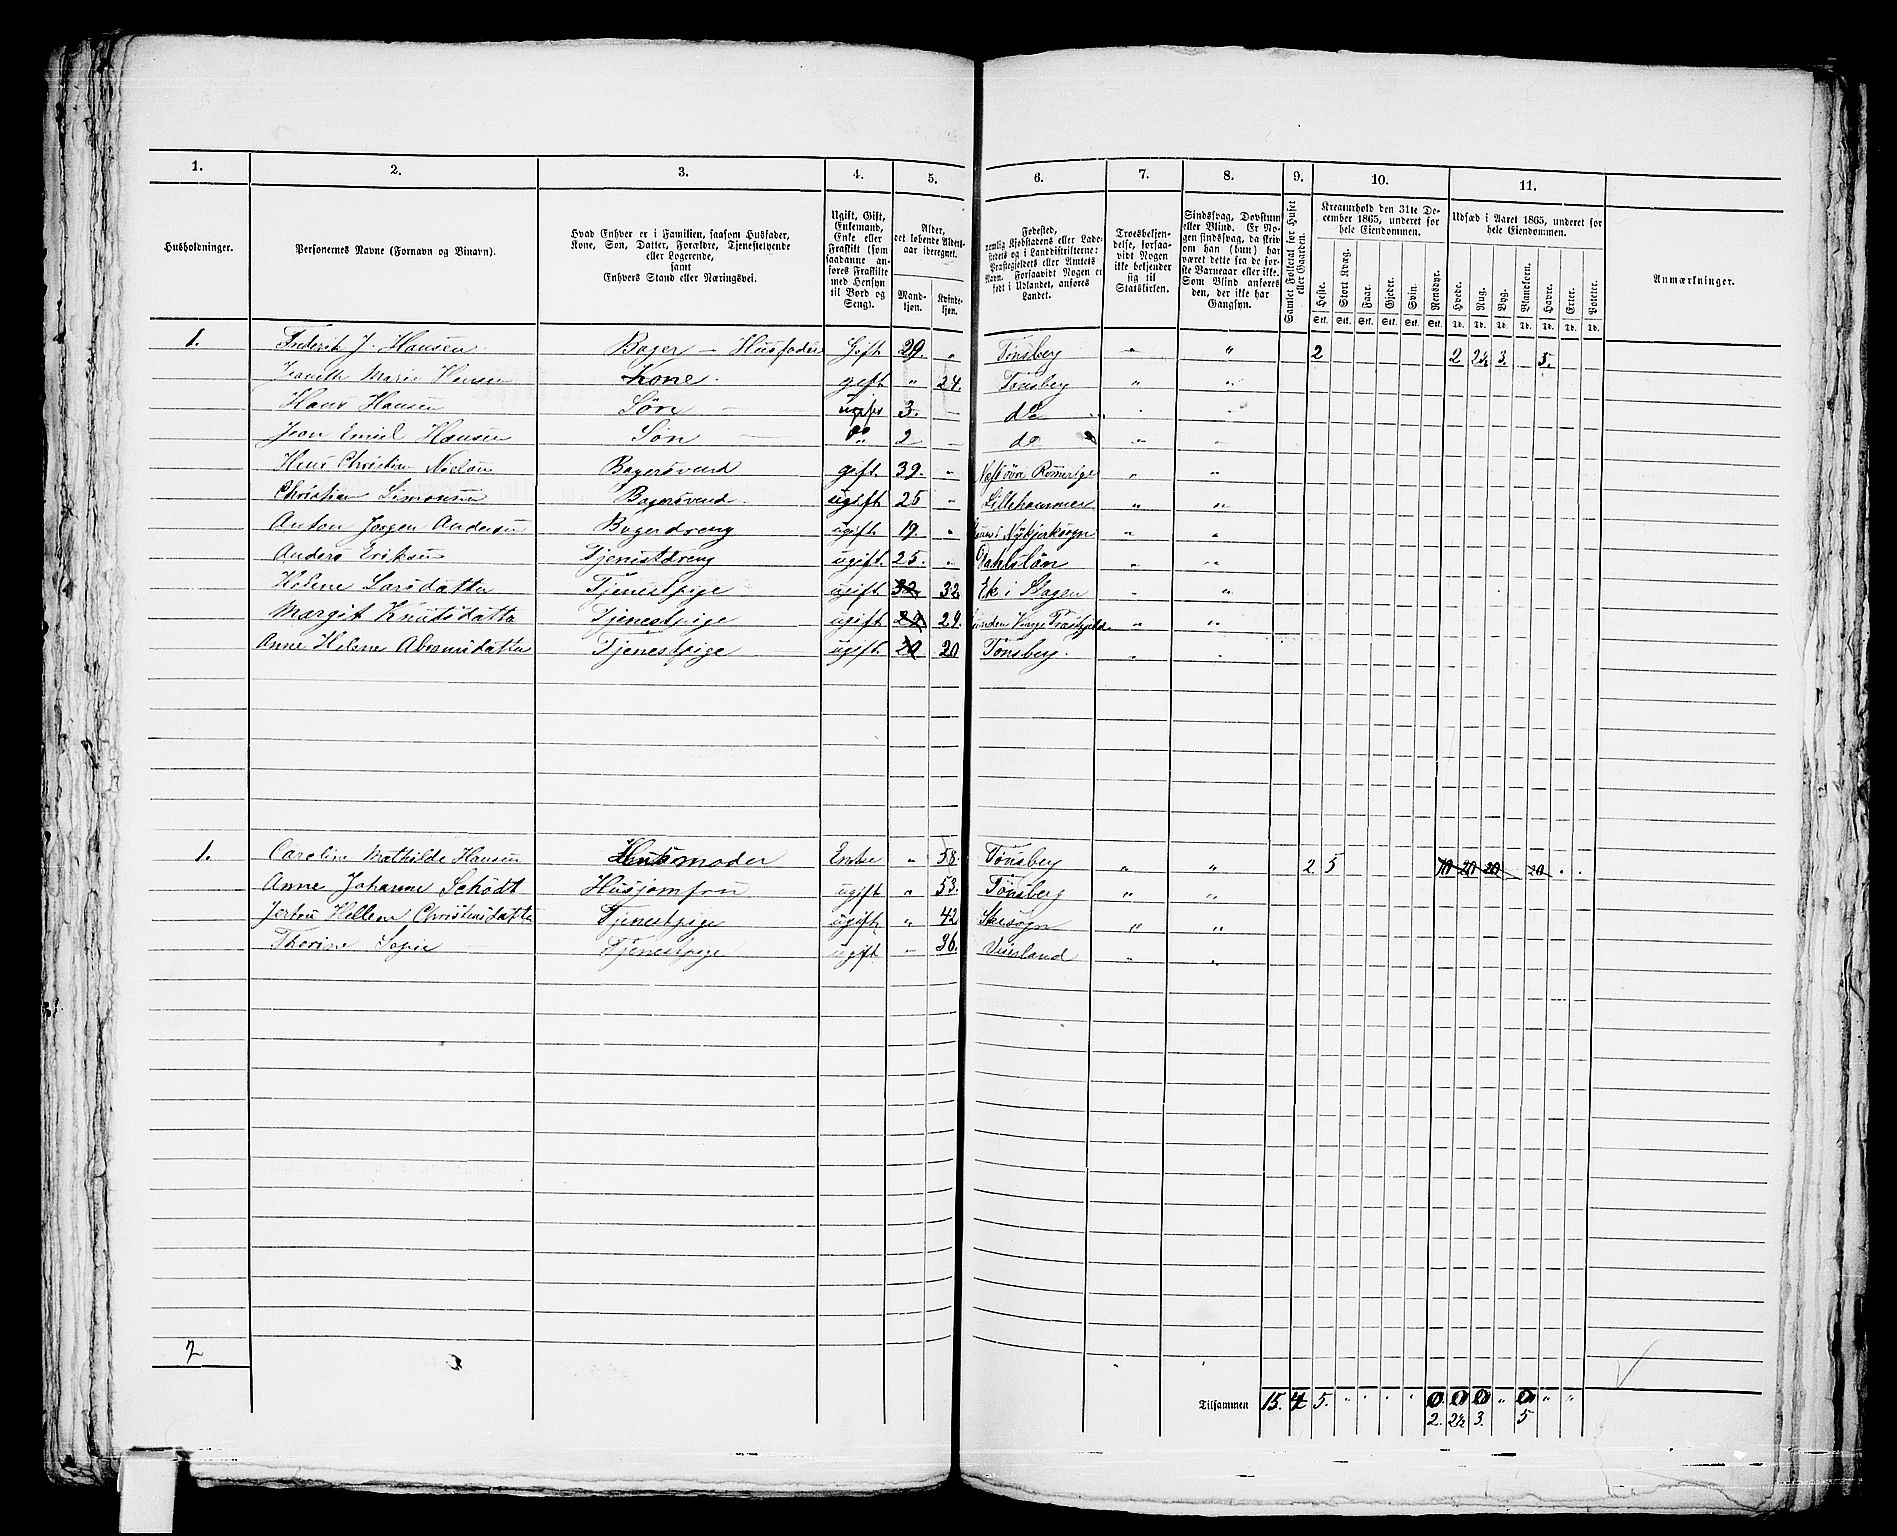 1. 2. 3. 4. 5. 6. 7. 8. 9. 10. 11.
Husholdninger.
Personernes Navne (Fornavn og Binavn).
Hvad Enhver er i Familien, saasom Husfader,
Kone, Søn, Datter, Forældre, Tjenestetyende
eller Logerende,
samt
Enhvers Stand eller Næringsvei.
Ugift, Gift,
Enkemand,
Enke eller
Fraskilt (som
saadanne an-
føres Fraskilte
med Hensyn
til Bord og
Seng).
Alder,
det løbende Alders-
aar iberegnet.
Mand-
kjøn.
Kvinde-
kjøn.
Fødested,
nemlig Kjøbstadens eller Lade-
stedets og i Landdistrikterne:
Præstegjeldets eller Amtets
Navn. Forsaavidt Nogen er
født i Udlandet, anføres
Landet.
Troesbekjen-
delse, forsaa-
vidt Nogen
ikke bekjender
sig til
Statskirken.
Sindssvag, Døvstum
eller Blind. Er No-
gen sindssvag, da skriv
om han (hun) har
været dette fra de før-
ste Barneaar eller ikke.
Som Blind anføres
den, der ikke har
Gangsyn.
Samlet Folketal for Huset
eller Gaarden.
Kreaturhold den 31te De-
cember 1865, underet for
hele Eiendommen.
Heste. Stort Kvæg. Faar. Gjeder. Svin. Rensdyr.
Stk. Stk. Stk. Stk. Stk. Stk.
Udsæd i Aaret 1865, underet for
hele Eiendommen.
Hvede. Rug. Byg. Blandkorn. Havre. Erter. Poteter.
Td. Td. Td. Td. Td. Td. Td.
Anmærkninger.
1. Frederik J. Hansen Bager – Husfader Gift 29 " Tønsberg " " 2 2 2½ 3. 5.
Marie Hansen Kone. gift " 24. Tønsberg " "
Hans Hansen Søn ugift 3. do
Jean Emiel Hansen Søn do 2 do " "
Hans Christian Nielsen Bagersvend gift. 39. " Romerige " "
Christian Simonsen Bagersvend. ugift 25 " Lillehammer " "
Anton Jørgen Andersen Bagerdreng ugift 19. " Nykjerksogn " "
Anders Eriksen Tjenestdreng ugift. 25. " Dahlslân " "
Helene Larsdatter Tjenestpige ugift 32 32 Ek i Slagen " "
Margit Knutsdatter Tjenestpige ugift 29 29. " "
Anne Helene Abramsdatter Tjenestpige ugift 20 20 Tønsberg. " "
1. Caroline Mathilde Hansen Husmoder Enke " 58. Tønsberg " " 2 5 10 20 20 20
Anne Johanne Schødt Husjomfru ugift " 53. Tønsberg " "
Christensdatter Tjenestpige ugift " 42 " "
Thorine Sofie Tjenestpige ugift " 36. " "
2
Tilsammen 15. 4 5. " " " " 0 0 0 " 0 " "
2. 2½ 3. 5